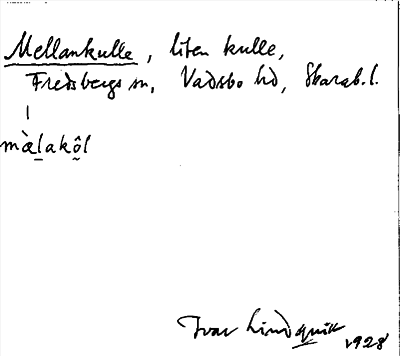 Mellankulle, liten kulle,
Fredsbergs sn, Vadsbo hd, Skarab. l.
mæ̀l̠akô̰l
Ivar Lindquist 1928